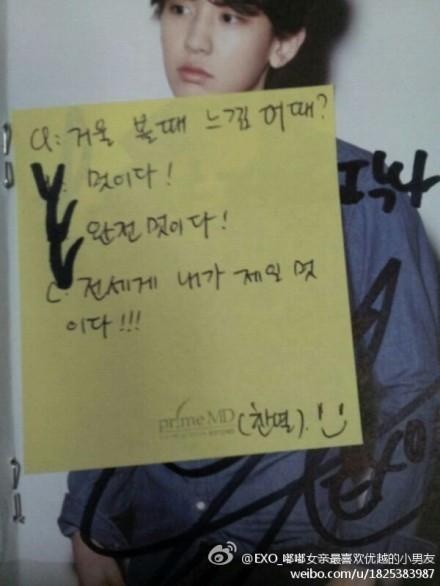 Q: 거울 볼때 느낌 어때?
멋이다!
완전 멋이다!
C. 전세게 내가 제일 멋
이다!!!
prime MD
(찬열).
@EXO_嘟嘟女亲最喜欢优越的小男友
weibo.com/u/1825383987